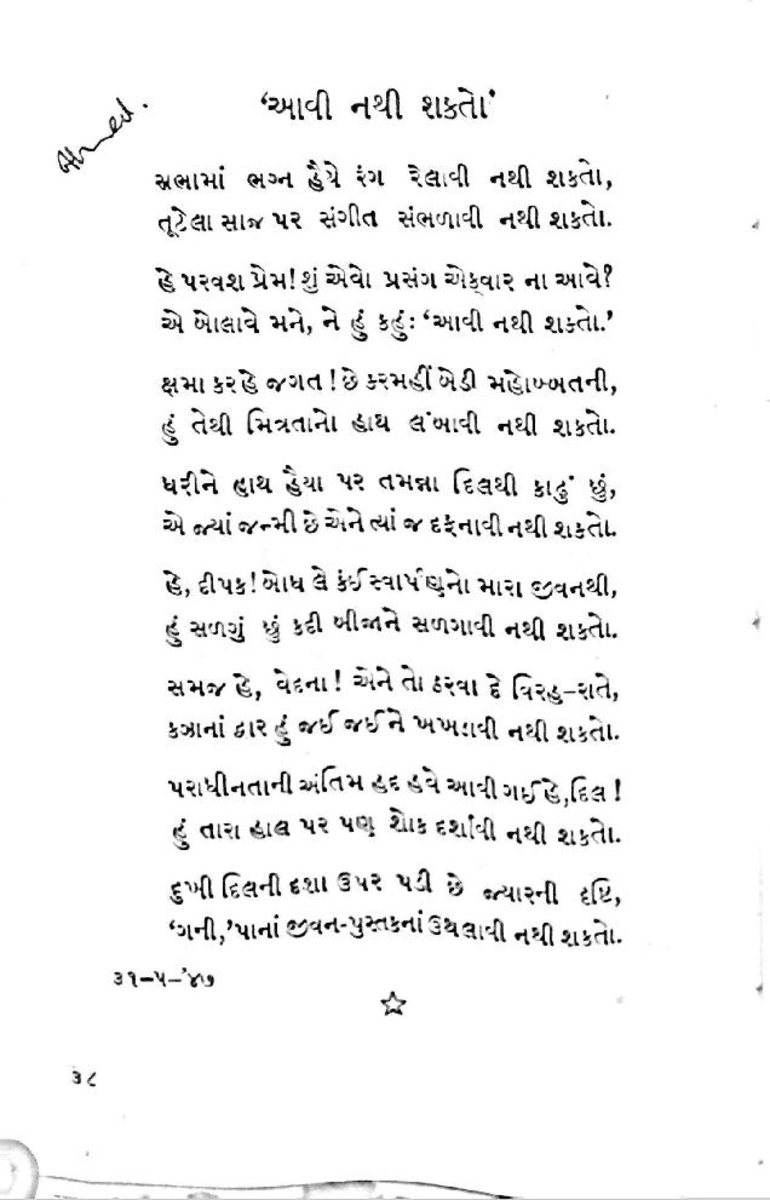 Ahmed.
‘આવી નથી શકતો’
સભામાં ભગ્ન હૈયે રંગ રેલાવી નથી શકતો,
તૂટેલા સાજ પર સંગીત સંભળાવી નથી શકતો.
હે પરવશ પ્રેમ! શું એવો પ્રસંગ એક્વાર ના આવે?
એ બોલાવે મને, ને હું કહુંઃ ‘આવી નથી શક્તો.’
ક્ષમા કર હે જગત ! છે કરમહીં બેડી મહોબ્બતની,
હું તેથી મિત્રતાનો હાથ લંબાવી નથી શકતો.
ધરીને હાથ હૈયા પર તમન્ના દિલથી કાઢું છું,
એ જ્યાં જન્મી છે એને ત્યાં જ દફનાવી નથી શકતો.
હે, દીપક! બોધ લે કંઈ સ્વાર્પણનો મારા જીવનથી,
હું સળગું છું કદી બીજાને સળગાવી નથી શકતો.
સમજ હે, વેદના ! એને તો ઠરવા દે વિરહ-રાતે,
કઝાનાં દ્વાર હું જઈ જઈને ખખડાવી નથી શકતો.
પરાધીનતાની અંતિમ હદ હવે આવી ગઈ હે, દિલ !
હું તારા હાલ પર પણ શોક દર્શાવી નથી શકતો.
દુખી દિલની દશા ઉપર પડી છે જ્યારની દૃષ્ટિ,
‘ગની,’ પાનાં જીવન-પુસ્તકનાં ઉથલાવી નથી શકતો.
૩૧-૫-'૪૭
૩૮